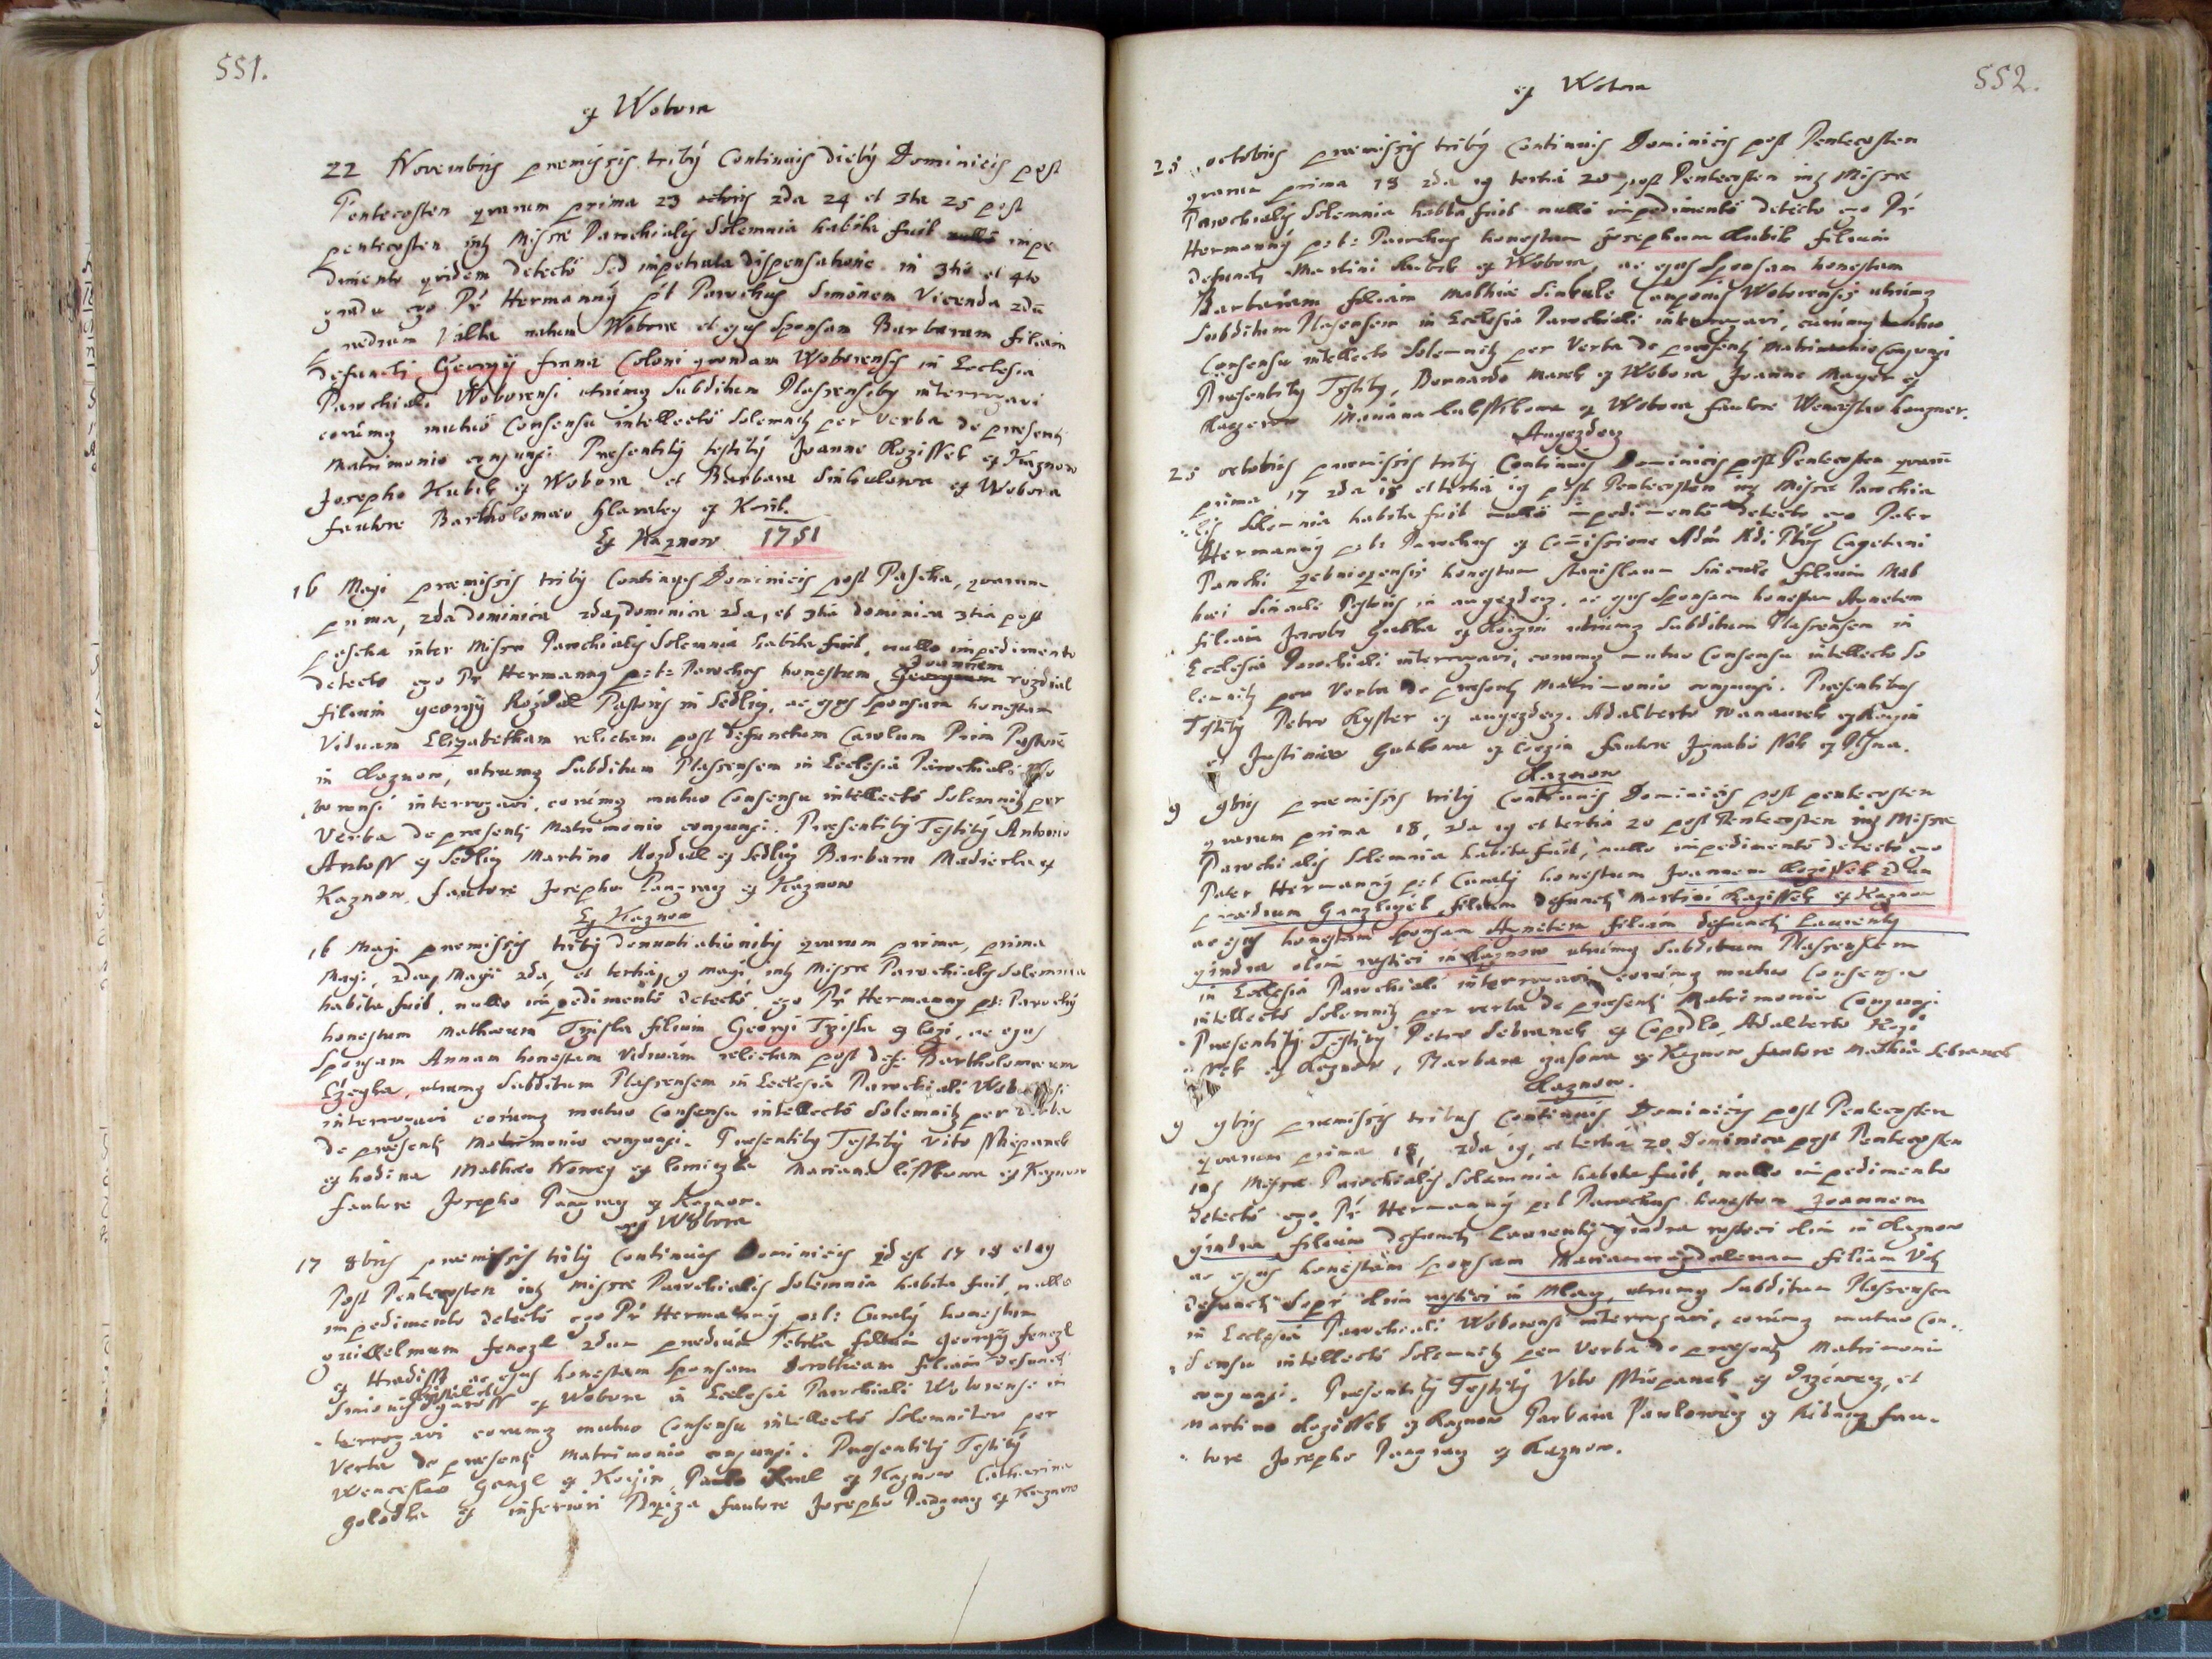 551.
ex Wobora
22 Novembris praemissis tribus Continuis diebus Dominicis post
Pentecosten quarum prima 23 octbris 2da 24 et 3tia 25 post
pentecosten int Missae Parochialis Solemnia habita fuit nullo impe
dimento quidem detecto Sed impetrata dispensatione in 3tio et 4to
gradu ego Pr Hermannus pt Parochus Simonem Vicenda 2du
praedium Valta natum Wobora et ejus Sponsam Barbaram filiam
defuncti Georgii frana Coloni quondam Woborensis in Ecclesia
Parochiali Woborensi utrumq Subditum Plassensibus interrogavi
eorumq mutuo Consensu intellecto Solemnit per Verba de praesenti
Matrimonio conjunxi Praesentibus testibus Joanne Rozissek ex Kaznow
Josepho Kubik ex Wobora et Barbara Sinkulowa ex Wobora
fautore Bartholomaeo Hlawatey ex Korit.
Ex Kaznow 1751
16 Maji praemissis tribus Continuis Dominicis post Pascha, quarum
prima, 2da Dominica 2da, Dominica 2da, et 3tia dominica 3tia post
pascha inter Missae Parochialis Solemnia habita fuit, nullo impedimento
detecto ego Pr Hermannus p:t: Parochus honestum Georgium Joannem rozdial
filium georgii Rozdal Pastoris in Sedlitz, ac ejus Sponsam honestam
Viduam Elizabetham relictam post defunctum Carolum Prim Pastore
in Kaznow, utrumq Subditum Plassensem in Ecclesia Parochiali Wo
borensi interrogavi, eorumq mutuo Consensu intellecto Solemnit per
Verba de praesenti Matrimonio conjunxi. Praesentibus Testibus Antonio
Antoss ex Sedlitz Martino Rozdial ex Sedlitz Barbara Madierka ex
Kaznow, fautore Josepho Pangratz ex Kaznow
Ex Kaznow
16 Maji praemissis tribus denuntiationibus quarum prima, prima
Maji, 2da, Maji 2da, et tertia, 9 maji, int Missae Parochialis Solemnia
habita fuit, nullo impedimento detecto, ego Pr Hermannus pt: Parochus
honestum Mathaeum Trziska filium Georgi Trziska ex Lozi, ac ejus
Sponsam Annam honestam Viduam relictam post def: Bartholomaeum
Czezka, utrumq Subditum Plassensem in Ecclesia Parochiali Woborensi
interrogavi eorumq mutuo Consensu intellecto Solemnit per Verba
de praesenti Matrimonio conjunxi. Praesentibus Testibus Vito Stiepanek
ex hodina Mathaeo Nowey ex lomiczka Mariana lisskowa ex Kaznow
fautore Josepho Pangratz ex Kaznow.
ex Wobora
17 8bris praemissis tribus Continuis Dominicis id est 17 18 et 19
Post Pentecosten int Missae Parochialis Solemnia habita fuit, nullo
impedimento detecto ego Pr Hermannus p:t: Curatus honestum
guillelmum fenczl 2dum praedium Petrka filium georgii fenczl
ex Hradisst, ac ejus honestam Sponsam Dorotheam filiam defuncti
Simonis ex Wobora in Ecclesia Parochiali Woborense in
terrogavi eorumq mutuo Consensu intellecto Solemniter per
Verba de praesenti Matrimonio conjunxi. Praesentibus Testibus
Wenceslao Ganzl ex Kozin, Paulo Kral ex Kaznow Catharina
golodka ex inferiori Brziza fautore Josepho Pangratz ex Kaznow
552.
ex Wobora
25 octobris praemissis tribus Continuis Dominicis post Pentecosten
quarum prima 18 2da 19 tertia 20 post Pentecosten int Missae
Parochialis Solemnia habita fuit nullo impedimento detecto ego Pr
Hermannus p:t: Parochus honestum Josephum Kubik filium
defuncti Martini Kubik ex Wobora, ac ejus Sponsam honestam
Barbaram filiam Mathiae Sinkule Cauponis Woborensis utrumq
Subditum Plasensem in Ecclesia Parochiali interrogavi, eorumq mutuo
Consensu intellecto Solemnit per Verba de praesenti Matrimonio Conjunxi
Praesentibus Testibus, Bernardo Marek ex Wobora Joanne Mayer ex
Kaczerow Mariana ex Wobora fautore Wenceslao kuczner.
Augezdecz
25 octobris praemissis tribus Continuis Dominicis post Pentecosten quarum
prima 17 2da 18 et tertia 19 post Pentecosten int Missae Parochia
lis Solemnia habita fuit nullo impedimento detecto ego Pater
Hermannus p:t: Parochus ex Comissione Adm Rdi Ptris Cagetani
Parochi honestum Stanislaum Sinkule filium Mat
haei Sinkule Pastoris in augezdecz, ac ejus Sponsam honestam Agnetem
filiam Jacobi Gutka ex Kozin utrumq Subditum Plassensem in
Ecclesia Parochiali interrogavi, eorumq mutuo Consensu intellecto So
lemnit per Verba de praesenti Matrimonio conjunxi. Praesentibus
Testibus Petro Kyster ex augezdecz. Adalberto wanaurek ex Kozin
et Justiniae Gutkowa ex Cozin fautore Ignatio Nok ex Plzna.
Kaznow
9 9bris praemissis tribus Continuis Dominicis post pentecosten
quarum prima 18, 2da 19 et tertia 20 post Pentecosten int Missae
Parochialis Solemnia habita fuit, nullo impedimento detecto ego
Pater Hermannus p:t Curatus honestum Joannem Rozissek 2dum
praedium Ganzligel filium defuncti Martini Razissek ex Kaznow
ac ejus honestam sponsam Agnetem filiam defuncti Laurentii
gindra olim rustici in Kaznow utrumq Subditum Plassensem
in Ecclesia Parochiali interrogavi eorumq mutuo Consensu
intellecto Solemnit per verba de praesenti Matrimonio Conjunxi
Praesentibus Testibus Petro Sebranek ex Copidlo, Adalberto Rozi
ssek ex Kaznow, Barbara gasowa ex Kaznow fautore Mathia Sebranek
Kaznow.
9 9bris praemissis tribus Continuis Dominicis post Pentecosten
quarum prima 18, 2da 19, et tertia 20 Dominica post Pentecosten
int Missae Parochialis Solemnia habita fuit, nullo impedimento
detecto ego Pr Hermannus p:t Parochus honestum Joannem
gindra filium defuncti Laurentii gindra rustici olim in Kaznow
ac ejus honestam sponsam Mariammagdalenam filiam Viti
defuncti Sopr olim rustici in Mlatz, utrumq Subditum Plassensem
in Ecclesia Parochiali Woborensi interrogavi, eorumq mutuo Con
sensu intellecto Solemnit per Verba de praesenti Matrimonio
conjunxi. Praesentibus Testibus Vito Stiepanek ex Drzewecz, et
Martino Rozissek ex Kaznow Barbara Pawlowicz ex Ribnicz fau-
tore Josepho Pangratz ex Kaznow.